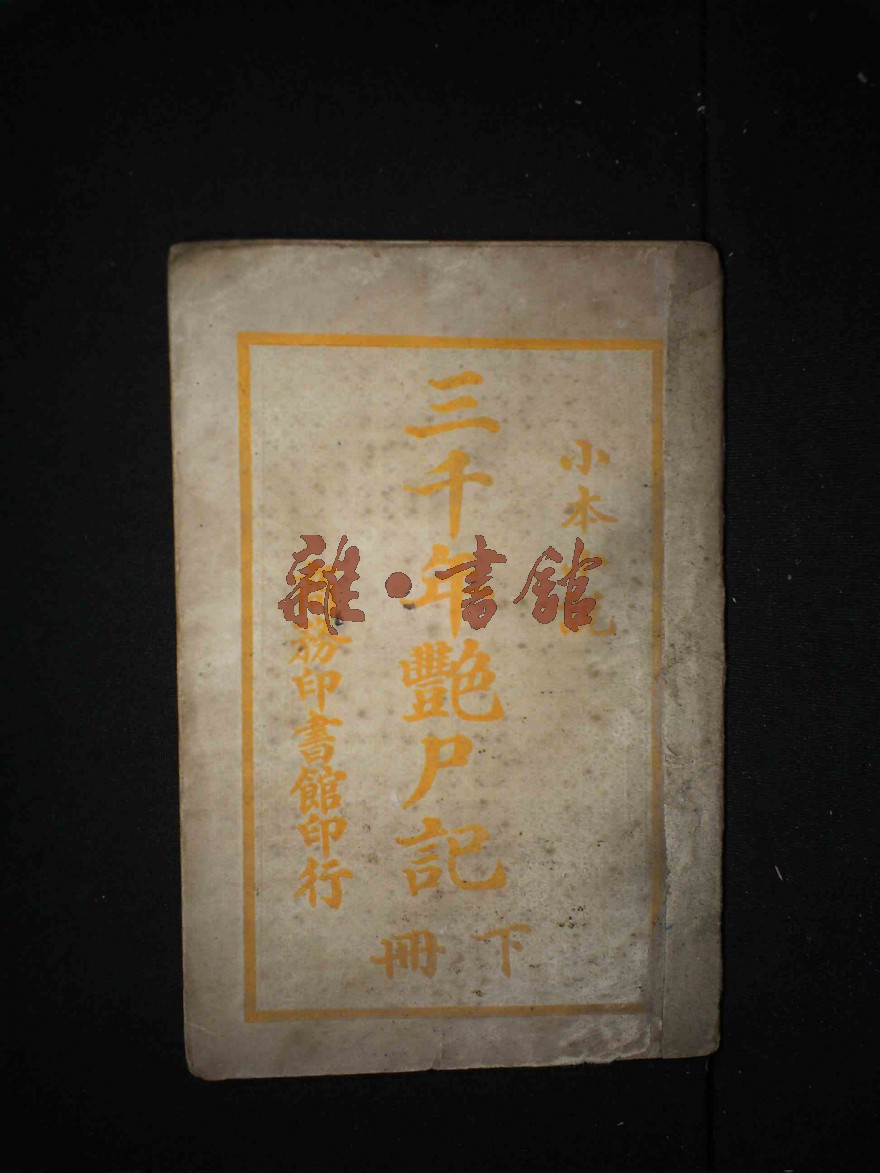 小本小說
三千年艷尸記
下冊
商務印書館印行
雜·書館